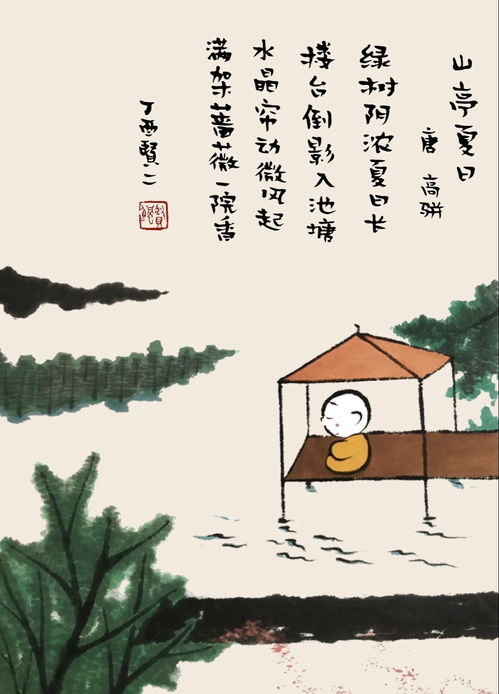 山亭夏日
唐 高骈
绿树阴浓夏日长
楼台倒影入池塘
水晶帘动微风起
满架蔷薇一院香
丁酉賢二